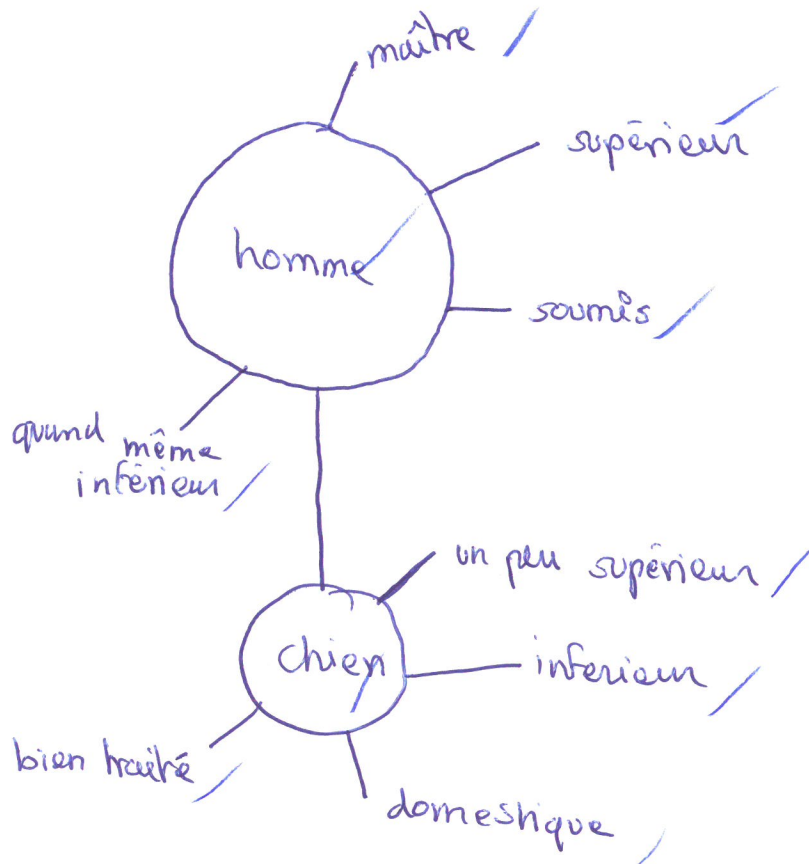 maître
supérieur
homme
soumis
quand même
inférieur
un peu supérieur
chien
inferieur
bien traité
domestique